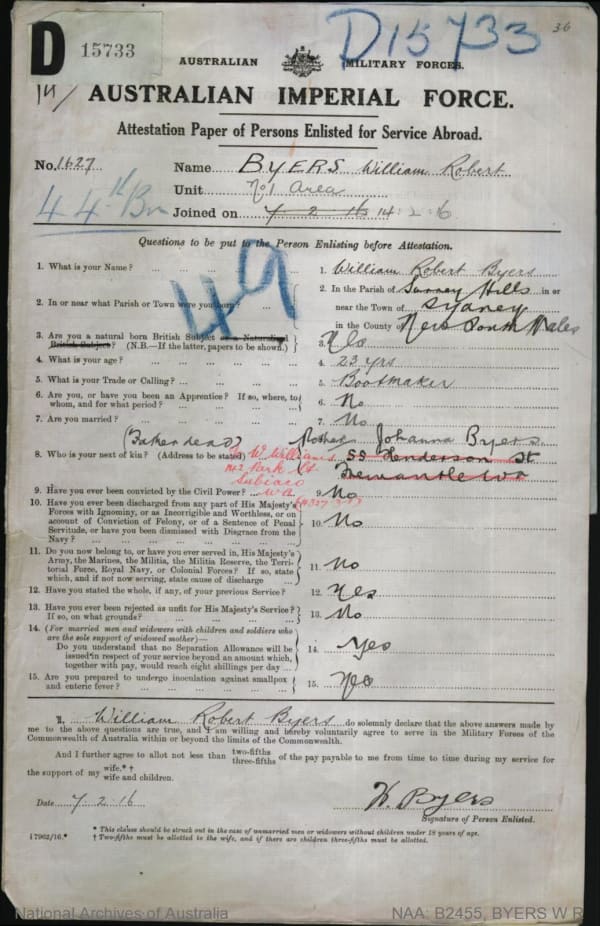 D 15733
D15733
36
AUSTRALIAN MILITARY FORCES.
AUSTRALIAN IMPERIAL FORCE.
Attestation Paper of Persons Enlisted for Service Abroad.
No. 1627 Name BYERS William Robert
44th Bn Unit No 1 Area
Joined on 7 2 16 14.2.16
Questions to be put to the Person Enlisting before Attestation.
49
1. What is your Name? 1. William Robert Byers
2. In or near what Parish or Town were you born? 2. In the Parish of Surrey Hills in or
near the Town of Sydney
in the County New South Wales
3. Are you a natural born British Subject or a Naturalized
British Subject? (N.B.—If the latter, papers to be shown.) 3. Yes
4. What is your age? 4. 23 yrs
5. What is your Trade or Calling? 5. Bootmaker
6. Are you, or have you been an Apprentice? If so, where, to
whom, and for what period? 6. No
7. Are you married? 7. No
(Father dead) Mother Johanna Byers
8. Who is your next of kin? (Address to be stated) W. Williams 55 Henderson St
142 Park St Fremantle WA
Subiaco
W.A.
9. Have you ever been convicted by the Civil Power? 9. No
10. Have you ever been discharged from any part of His Majesty's
Forces with Ignominy, or as Incorrigible and Worthless, or on
account of Conviction of Felony, or of a Sentence of Penal
Servitude, or have you been Dismissed with Disgrace from the
Navy? 10. No
11. Do you now belong to, or have you ever served in, His Majesty's
Army, the Marines, the Militia, the Militia Reserve, the Terri-
torial Force, Royal Navy, or Colonial Forces? If so, state
which, and if not now serving, state cause of discharge 11. No
12. Have you stated the whole, if any, of your previous Service? 12. Yes
13. Have you ever been rejected as unfit for His Majesty's Service?
If so, on what grounds? 13. No
14. (For married men and widowers with children and soldiers who
are the sole support of widowed mother)—
Do you understand that no Separation Allowance will be
issued in respect of your service beyond an amount which,
together with pay, would reach eight shillings per day 14. Yes
15. Are you prepared to undergo inoculation against smallpox
and enteric fever? 15. Yes
I, William Robert Byers do solemnly declare that the above answers made by
me to the above questions are true, and I am willing and hereby voluntarily agree to serve in the Military Forces of the
Commonwealth of Australia within or beyond the limits of the Commonwealth.
And I further agree to allot not less than two-fifths three-fifths of the pay payable to me from time to time during my service for
the support of my wife.* † wife and children.
Date 7.2.16 W. Byers
Signature of Person Enlisted.
* This clause should be struck out in the case of unmarried men or widowers without children under 18 years of age.
17962/16.* † Two-fifths must be allotted to the wife, and if there are children three-fifths must be allotted.
National Archives of Australia NAA: B2455, BYERS W R